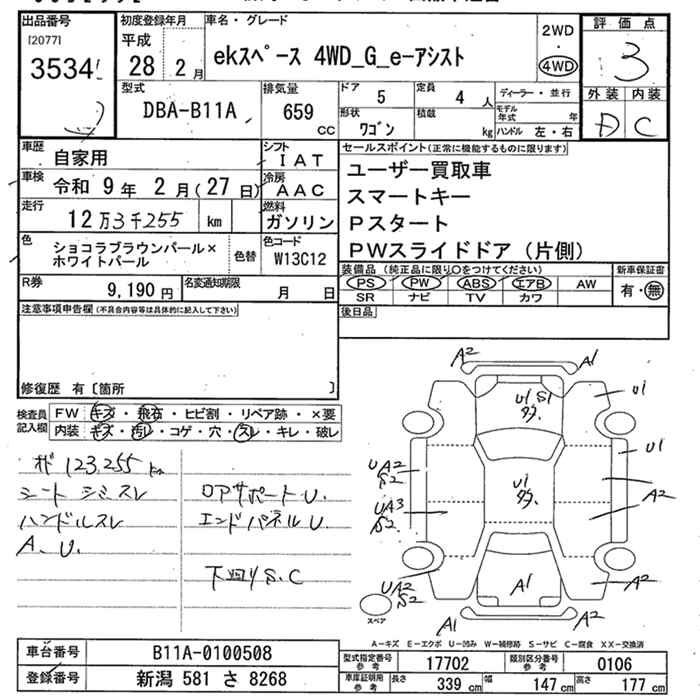 出品番号
[2077]
3534
初度登録年月
平成
28 2 月
車名・グレード
ekスペース 4WD_G_e-アシスト
2WD
・
4WD
評価点
3
外装 内装
D C
型式
DBA-B11A
排気量
659
CC
ドア
5
定員
4 人
ディーラー・並行
形状
ワゴン
積載
kg
モデル年式 年
ハンドル 左・右
車歴
自家用
シフト
IAT
車検
令和 9 年 2 月(27 日)
冷房
AAC
走行
12 万3 千255 km
燃料
ガソリン
色
ショコラブラウンパール×
ホワイトパール
色替
色コード
W13C12
R券
9,190 円
名変通知期限
月 日
セールスポイント(正常に機能するものに限ります)
ユーザー買取車
スマートキー
Pスタート
PWスライドドア(片側)
装備品(純正品に限り○をつけてください)
新車保証書
PS PW ABS エアB AW
SR ナビ TV カワ
有・無
後日品
注意事項申告欄(不具合内容等は具体的に記入して下さい)
修復歴 有〔箇所 〕
検査員
記入欄
FW キズ・飛石・ヒビ割・リペア跡・×要
内装 キズ・汚レ・コゲ・穴・スレ・キレ・破レ
123,255 km
シート シミスレ
ハンドルスレ
A. U.
ロアサポート U.
エンドパネル U.
下回り S.C
A2
A1
U1 S1
U1
U1
UA2
S2
U1
A2
UA3
S2
UA2
S2
A1
A2
A1
A2
スペア
A-キズ E-エクボ U-凹み W-補修跡 S-サビ C-腐食 XX-交換済
車台番号
B11A-0100508
登録番号
新潟 581 さ 8268
型式指定番号
参考
17702
類別区分番号
参考
0106
車庫証明用
参考
長さ
339 cm
幅
147 cm
高さ
177 cm